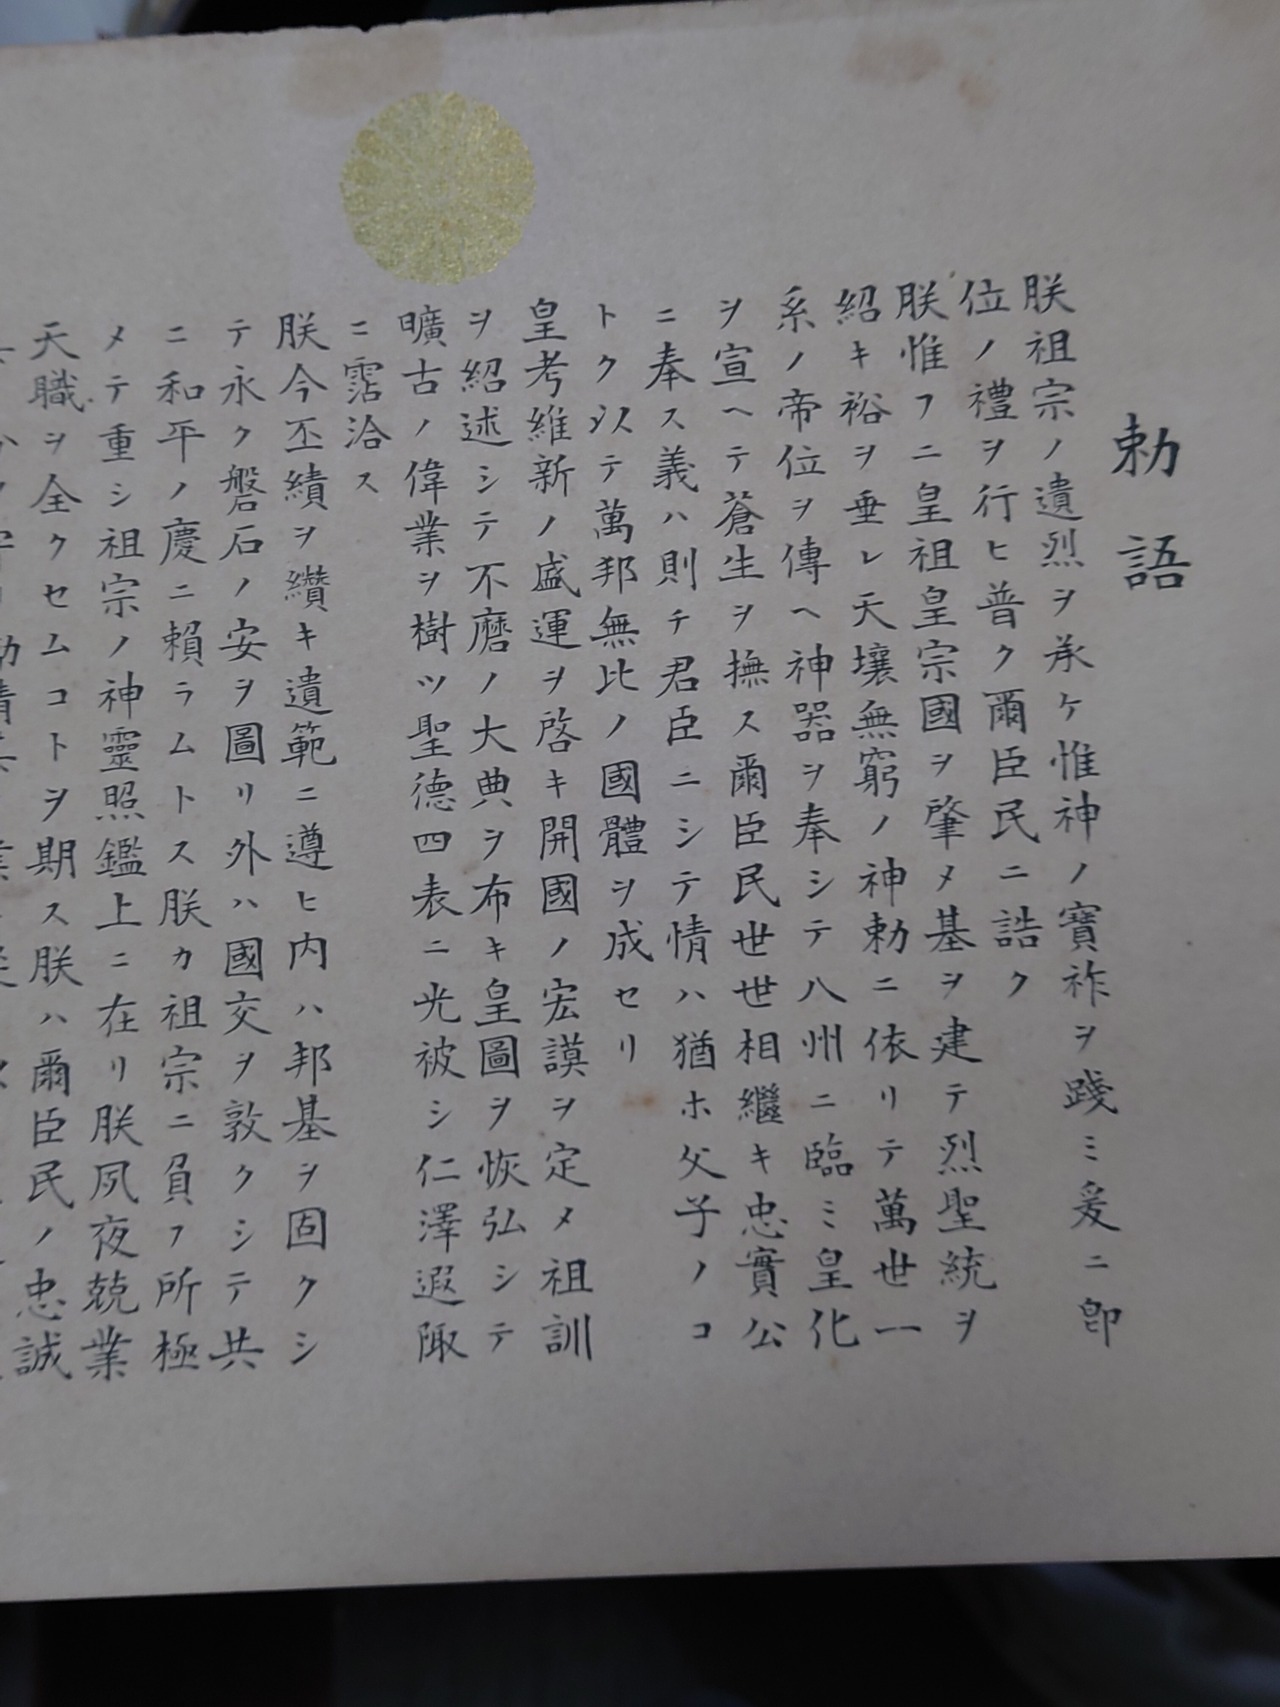 勅語
朕祖宗ノ遺烈ヲ承ケ惟神ノ寶祚ヲ踐ミ爰ニ卽
位ノ禮ヲ行ヒ普ク爾臣民ニ誥ク
朕惟フニ皇祖皇宗國ヲ肇メ基ヲ建テ烈聖統ヲ
紹キ裕ヲ垂レ天壤無窮ノ神勅ニ依リテ萬世一
系ノ帝位ヲ傳ヘ神器ヲ奉シテ八州ニ臨ミ皇化
ヲ宣ヘテ蒼生ヲ撫ス爾臣民世世相繼キ忠實公
ニ奉ス義ハ則チ君臣ニシテ情ハ猶ホ父子ノコ
トク以テ萬邦無比ノ國體ヲ成セリ
皇考維新ノ盛運ヲ啓キ開國ノ宏謨ヲ定メ祖訓
ヲ紹述シテ不磨ノ大典ヲ布キ皇圖ヲ恢弘シテ
曠古ノ偉業ヲ樹ツ聖德四表ニ光被シ仁澤遐陬
ニ霑洽ス
朕今丕績ヲ纘キ遺範ニ遵ヒ內ハ邦基ヲ固クシ
テ永ク磐石ノ安ヲ圖リ外ハ國交ヲ敦クシテ共
ニ和平ノ慶ニ賴ラムトス朕カ祖宗ニ負フ所極
メテ重シ祖宗ノ神靈照鑑上ニ在リ朕夙夜兢業
天職ヲ全クセムコトヲ期ス朕ハ爾臣民ノ忠誠